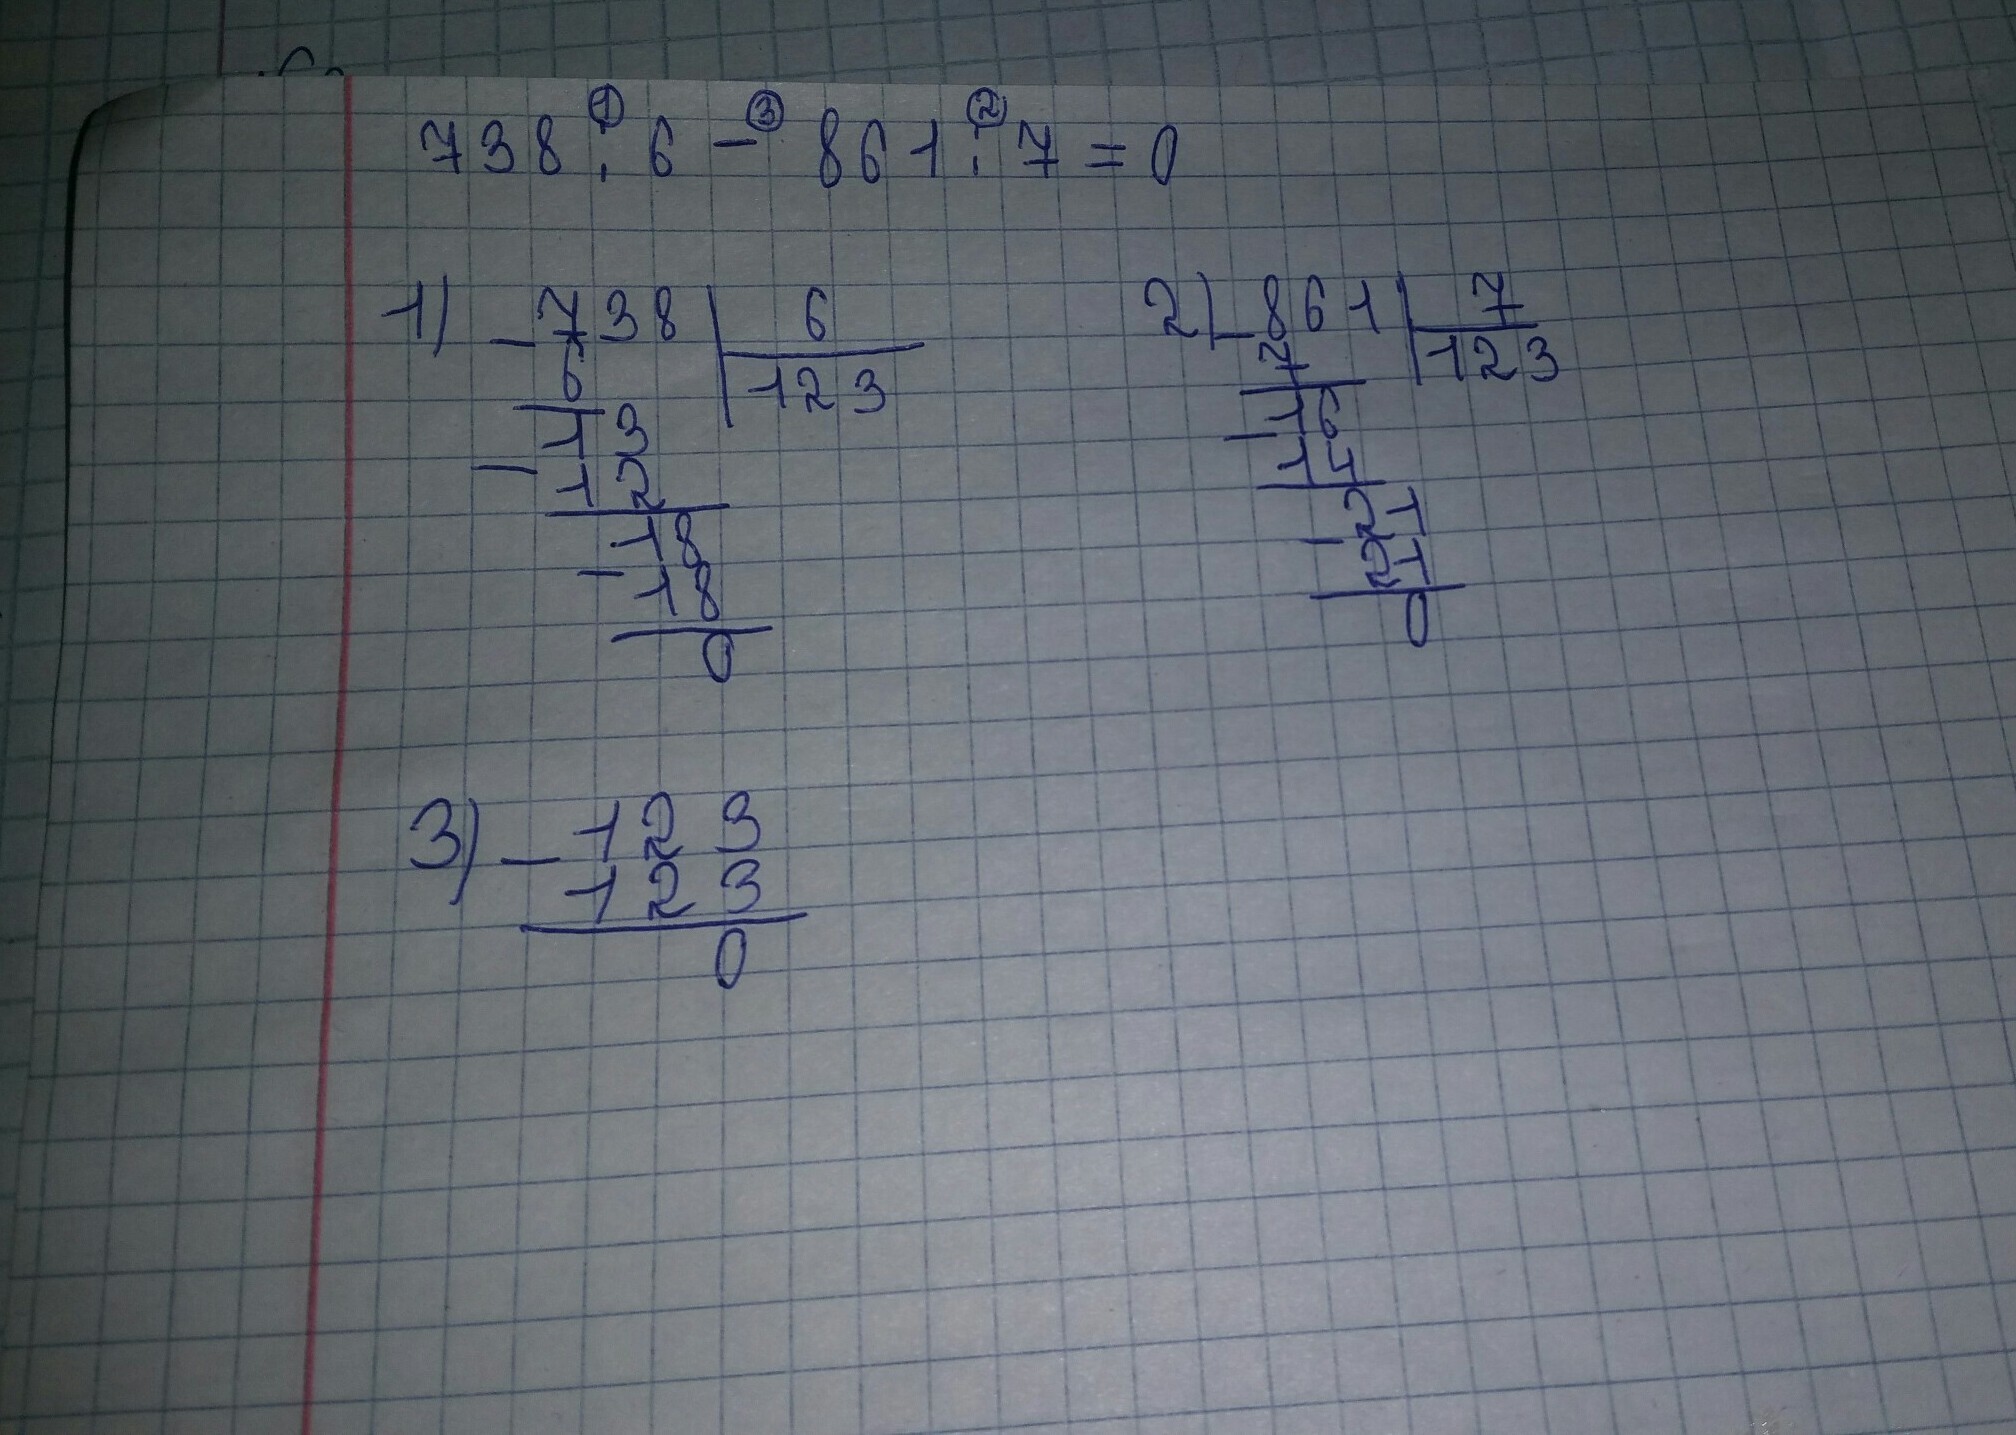 738 : 6 - 861 : 7 = 0
① ③ ②
1) - 738 | 6
6 | 123
13
- 12
18
- 18
0
2) - 861 | 7
7 | 123
16
- 14
21
- 21
0
3) - 123
123
0